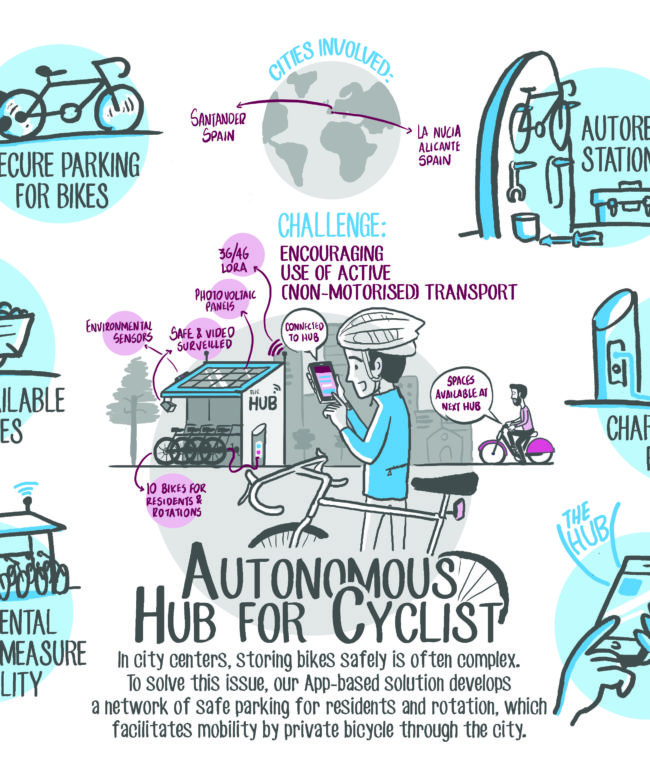 CITIES INVOLVED:
SANTANDER
SPAIN
LA NUCIA
ALICANTE
SPAIN
ECURE PARKING
FOR BIKES
AUTORE
STATION
CHALLENGE:
ENCOURAGING
USE OF ACTIVE
(NON-MOTORISED) TRANSPORT
3G/4G
LORA
PHOTOVOLTAIC
PANELS
ENVIRONMENTAL
SENSORS
SAFE & VIDEO
SURVEILLED
CONNECTED
TO HUB
THE
HUB
SPACES
AVAILABLE AT
NEXT HUB
10 BIKES FOR
RESIDENTS &
ROTATIONS
ILABLE
ES
CHAR
E
ENTAL
MEASURE
LITY
THE
HUB
AUTONOMOUS
HUB FOR CYCLIST
In city centers, storing bikes safely is often complex.
To solve this issue, our App-based solution develops
a network of safe parking for residents and rotation, which
facilitates mobility by private bicycle through the city.